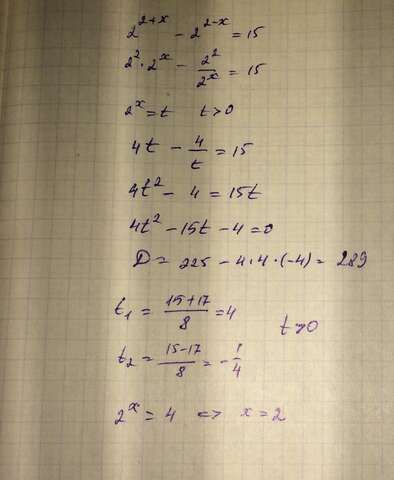 2^{2+x} - 2^{2-x} = 15
2^2 · 2^x - \frac{2^2}{2^x} = 15
2^x = t t > 0
4t - \frac{4}{t} = 15
4t^2 - 4 = 15t
4t^2 - 15t - 4 = 0
D = 225 - 4·4·(-4) = 289
t_1 = \frac{15+17}{8} = 4
t > 0
t_2 = \frac{15-17}{8} = -\frac{1}{4}
2^x = 4 <=> x = 2